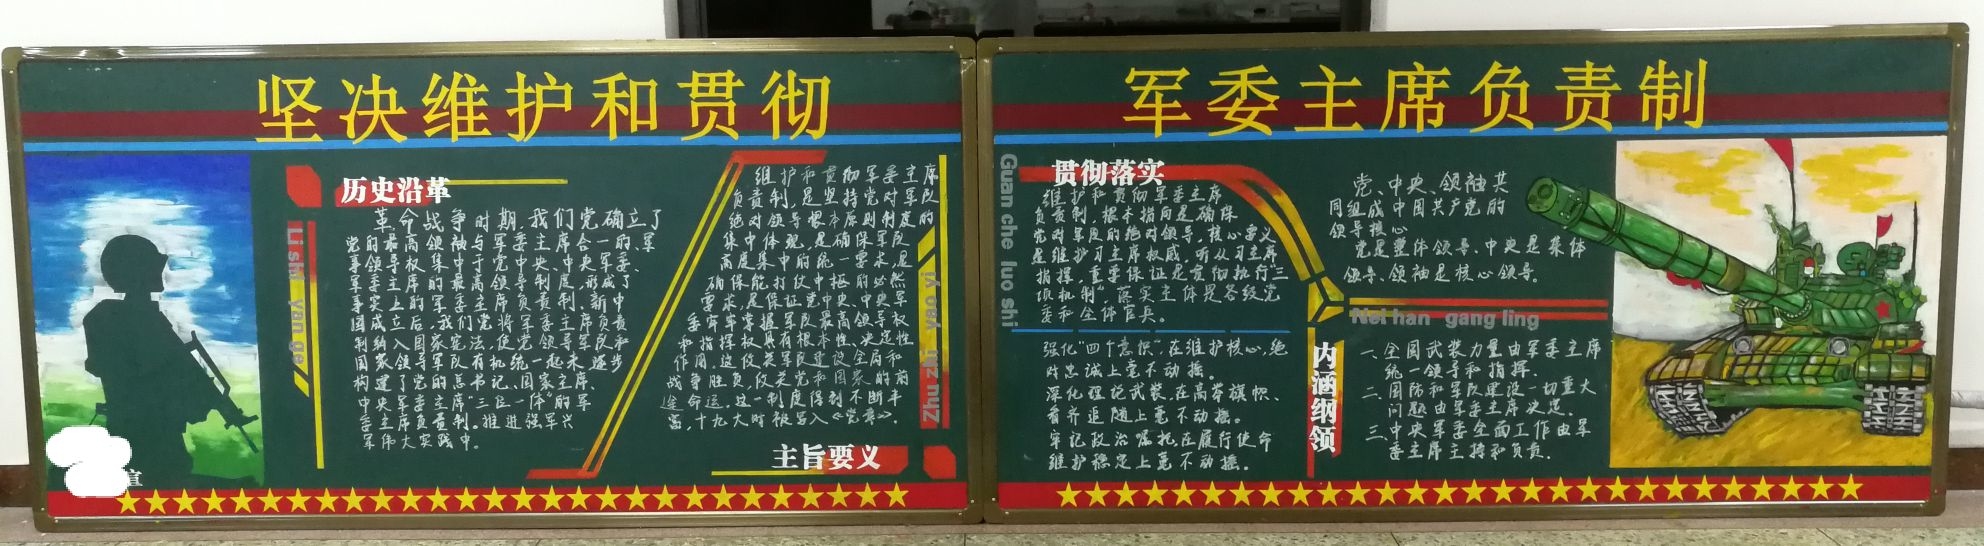 坚决维护和贯彻
军委主席负责制
历史沿革
Li shi yan ge
革命战争时期,我们党确立了
党的最高领袖与军委主席合一的、军
事领导权集中于党中央、中央军委、
军委主席的最高领导制度,形成了
事实上的军委主席负责制。新中
国成立后,我们党将军委主席负责
制纳入国家宪法,使党领导军队和
国家领导军队有机统一起来,逐步
构建了党的总书记、国家主席、
中央军委主席“三位一体”的军
委主席负责制。推进强军兴
军伟大实践中。
维护和贯彻军委主席
负责制,是坚持党对军队
绝对领导根本原则制度的
集中体现,是确保军队
高度集中的统一要求,是
确保能打仗中枢的必然
要求,是保证党中央、中央军
委牢牢掌握军队最高领导权
和指挥权具有根本性、决定性
作用。这仅关军队建设全局和
战争胜负,仅关党和国家的前
途命运。这一制度得到不断丰
富,十九大时被写入《党章》。
主旨要义
Zhu zhi yao yi
宣
Guan che luo shi
贯彻落实
维护和贯彻军委主席
负责制,根本指向是确保
党对军队的绝对领导,核心要义
是维护习主席权威、听从习主席
指挥,重要保证是贯彻执行三
项机制,落实主体是各级党
委和全体官兵。
强化“四个意识”,在维护核心,绝
对忠诚上毫不动摇。
深化理论武装,在高举旗帜、
看齐追随上毫不动摇。
牢记政治嘱托,在履行使命
维护稳定上毫不动摇。
党、中央、领袖共
同组成中国共产党的
领导核心
党是整体领导、中央是集体
领导、领袖是核心领导。
Nei han gang ling
内涵纲领
一、全国武装力量由军委主席
统一领导和指挥.
二、国防和军队建设一切重大
问题由军委主席决定.
三、中央军委全面工作由军
委主席主持和负责.